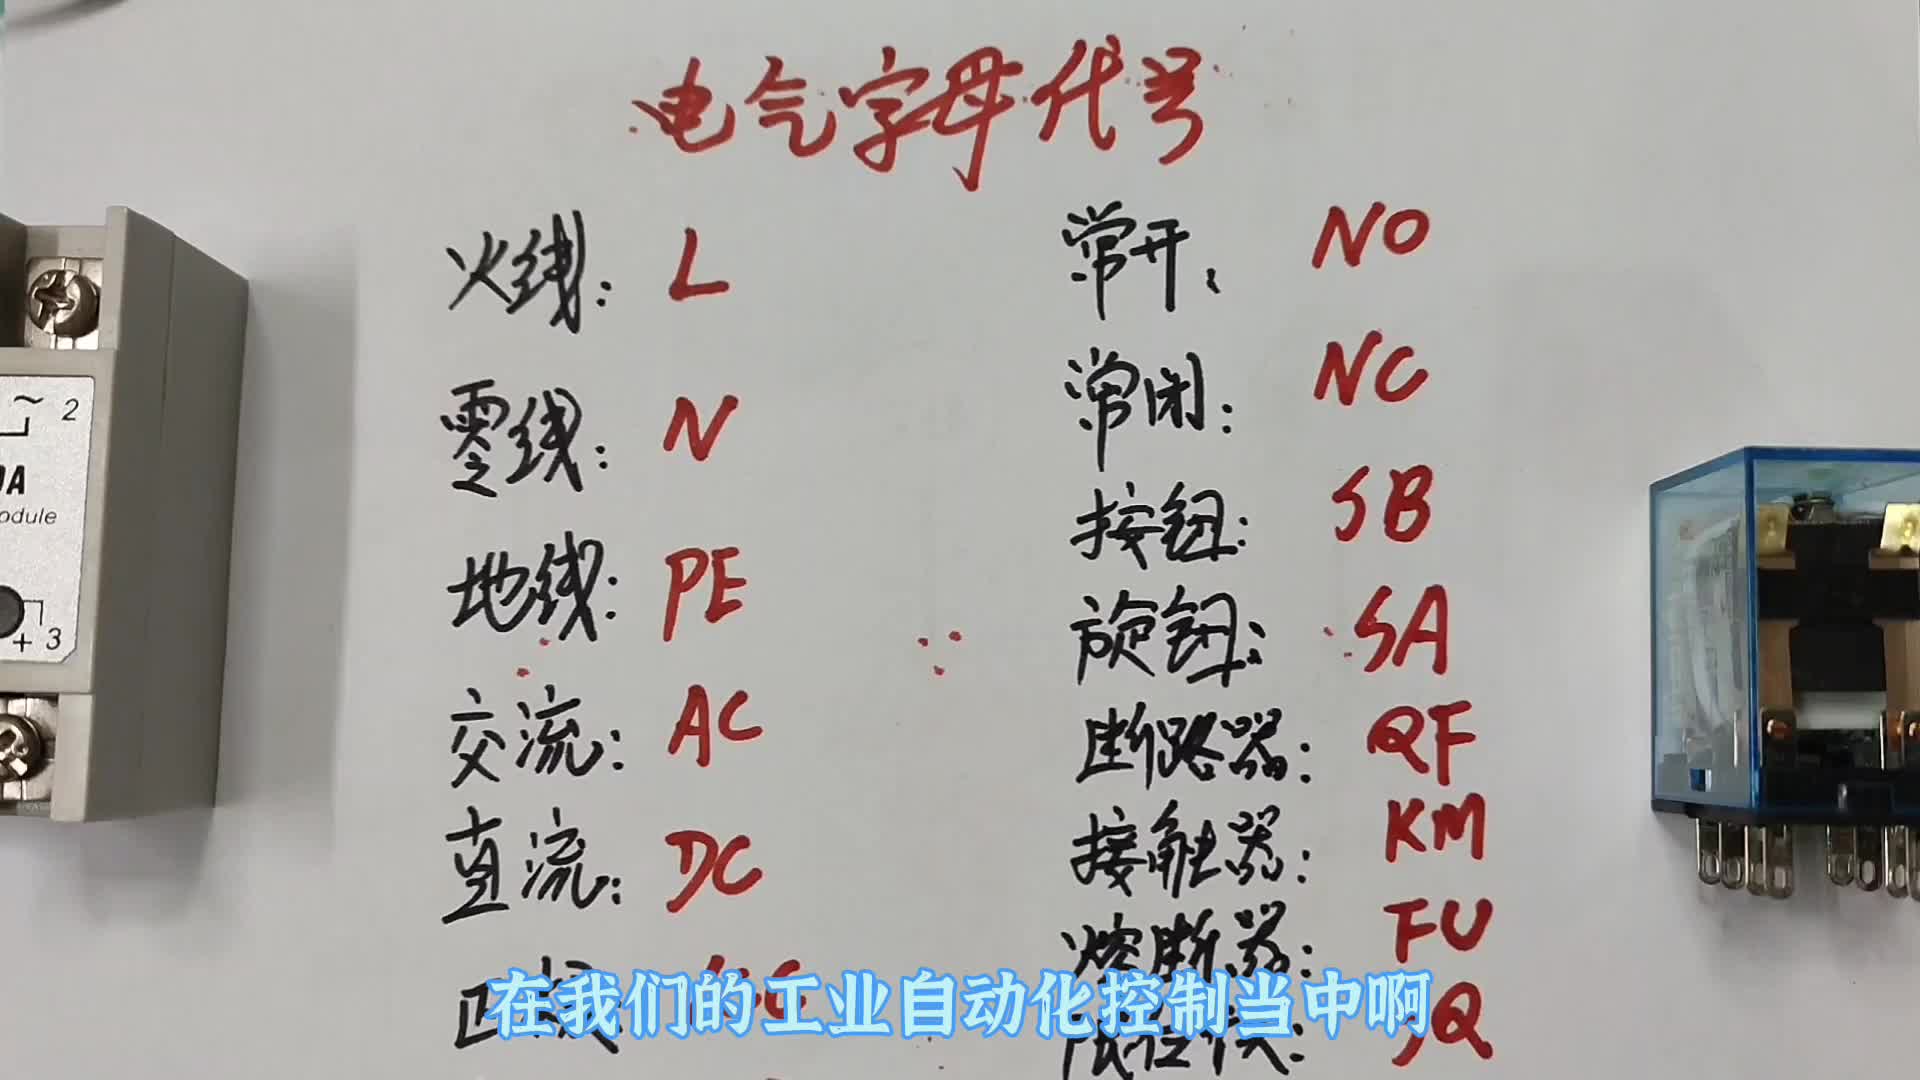 电气字母代号
火线: L
零线: N
地线: PE
交流: AC
直流: DC
常开: NO
常闭: NC
按钮: SB
旋钮: SA
断路器: QF
接触器: KM
熔断器: FU
SQ
~ 2
odule
+ 3
在我们的工业自动化控制当中啊